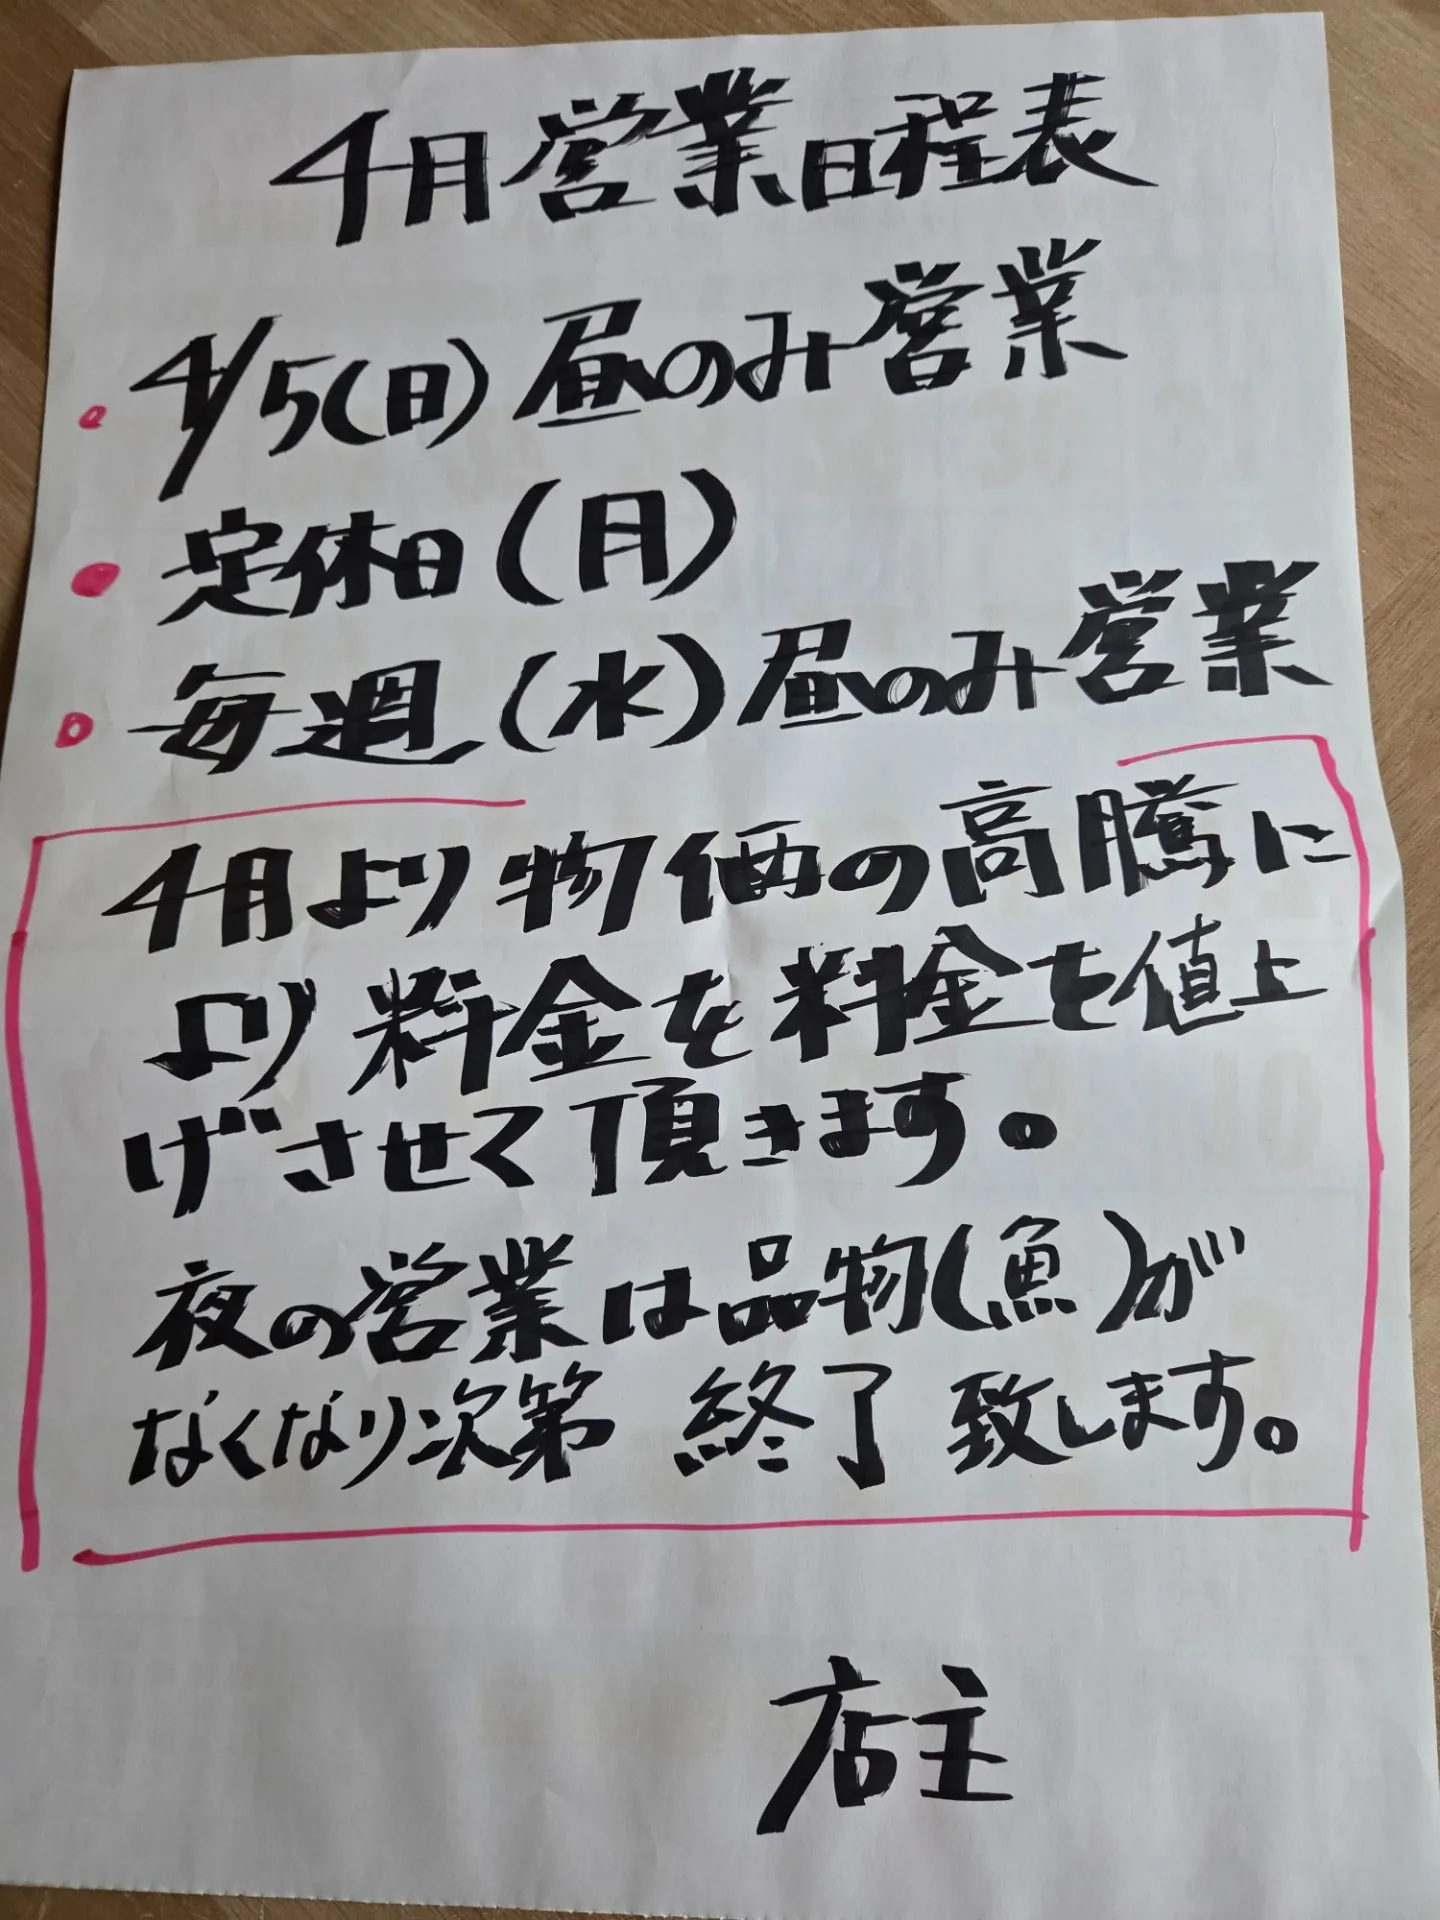 4月営業日程表
• 4/5(日)昼のみ営業
• 定休日(月)
• 毎週(水)昼のみ営業
4月より物価の高騰に
より料金を料金を値上
げさせて頂きます。
夜の営業は品物(魚)が
なくなり次第 終了 致します。
店主